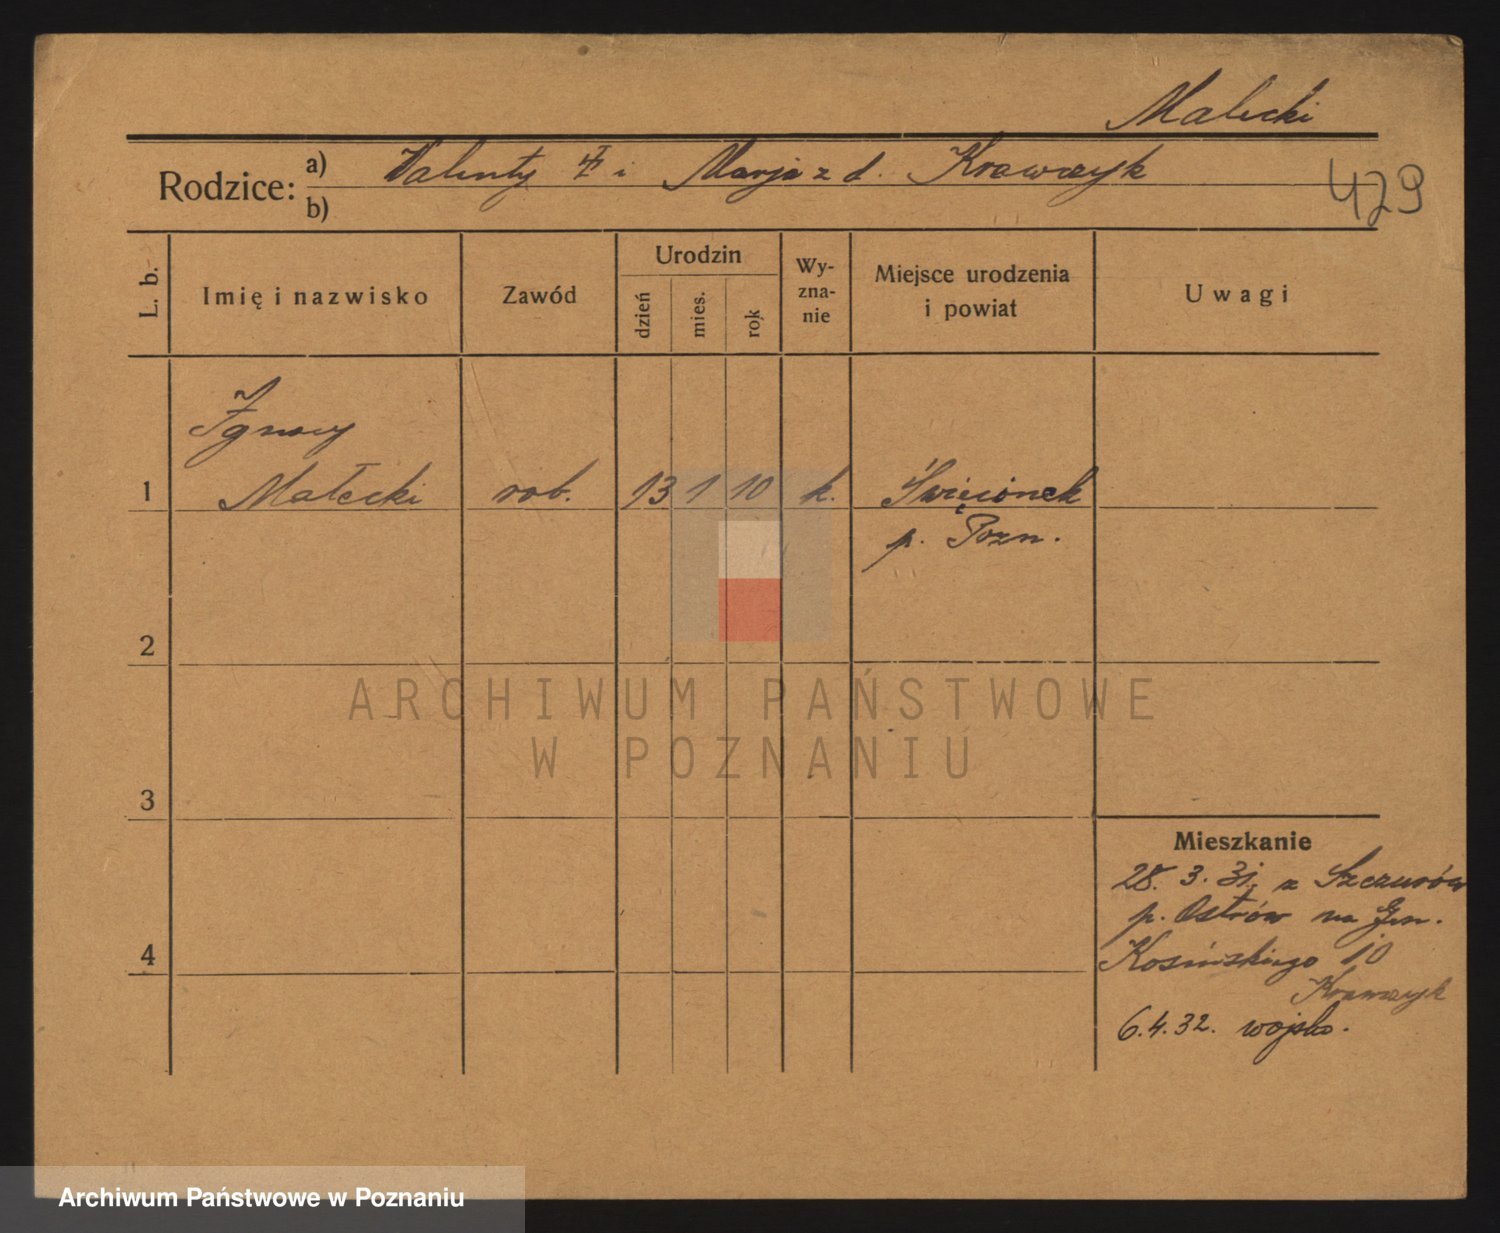 Małecki
Rodzice: a) Walenty i Marja z d. Krawczyk
b)
429
L. b.
Imię i nazwisko
Zawód
Urodzin
dzień
mies.
rok
Wy-
zna-
nie
Miejsce urodzenia
i powiat
Uwagi
Ignacy
1 Małecki rob. 13 1 10 k. Święcinek
p. Pozn.
2
3
4
Mieszkanie
28. 3. 31. z Szczurów
p. Ostrów na Gen.
Kosińskiego 10
Krawczyk
6.4.32. wojsko.
ARCHIWUM PAŃSTWOWE
W POZNANIU
Archiwum Państwowe w Poznaniu